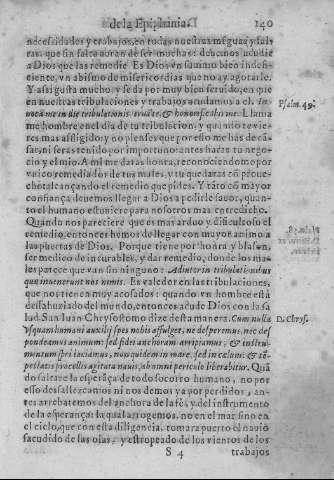 de la Epiphania.
140
necessidades y trabajos, en todas nuestras menguas y fal-
tas: que sin falta auran de ser muchas: deuemos acudir
a Dios que las remedie. Es Dios vn summo bien indefi-
ciente, vn abismo de misericordias que no ay agotarle.
Y assi gusta mucho, y se da por muy bien seruido, en que
en nuestras tribulaciones y trabajos acudamos a el. In-
uoca me in die tribulationis eruāte, & honorificabis me. Llama
me hombre en el dia de tu tribulacion, y quanto te vie-
res mas affligido: y no pienses que por esso me has de cā
sar, ni seras tenido por importuno antes haras tu nego-
cio y el mio. A mi me daras honra, reconociendome por
vnico remediador de tus males, y tu quedaras cō proue-
cho alcançando el remedio que pides. Y tāto cō mayor
confiança deuemos llegar a Dios a pedirle fauor, quan-
to el humano estuuiere para nosotros mas entredicho.
Quando nos pareciere que es mas arduo y difficultoso el
remedio, entonces hemos de llegar con mayor animo a
las puertas de Dios. Porque tiene por honra y blason,
ser medico de incurables, y dar remedio, donde los ma-
les parece que van sin ninguno: Adiutor in tribulationibus
quæ inuenerunt nos nimis. Es valedor en las tribulaciones,
que nos tienen muy acosados: quando vn hombre está
desahuziado del mundo, entonces acude Dios con la sa
lud. San Iuan Chrysostomo dize desta manera. Cum nulla
vsquam humani auxilij spes nobis affulget, ne desperemus, nec des
pondeamus animum: sed fidei anchoram arripiamus, & instru-
mentum spei iaciamus, nos quidem in mare, sed in cælum: & tē-
pestatis procellis agitata nauis, ab omni periculo liberabitur. Quā
do faltare la esperāça de todo socorro humano, no por
esso desfallezcamos ni nos demos ya por perdidos, an-
tes arrebatemos del anchora de la fè, y del instrumento
de la esperança: la qual arrogemos, no en el mar sino en
el cielo, que con esta diligencia, tomara puerto el nauio
sacudido de las olas, y estropeado de los vientos de los
S 4
trabajos
Psalm. 49.
D. Chrys.